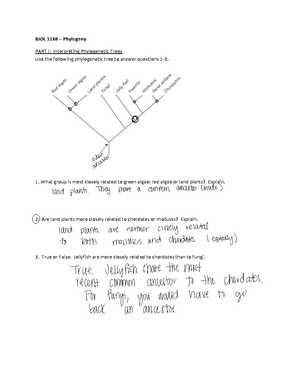 BIOL 1188 – Phylogeny
PART I: Interpreting Phylogenetic Trees
Use the following phylogenetic tree to answer questions 1-3.
Red algae
Green algae
Land plants
Fungi
Jelly fish
Insects
Mollusca
Chordates
ancestor
1. What group is most closely related to green algae: red algae or land plants? Explain.
land plants. They share a common ancestor (node)
2. Are land plants more closely related to chordates or mollusks? Explain.
land plants are neither closely related
to both molluscs and chordates. (equally)
3. True or False. Jellyfish are more closely related to chordates than to fungi.
True. Jellyfish share the most
recent common ancestor to the chordates.
For fungi, you would have to go
back an ancestor.